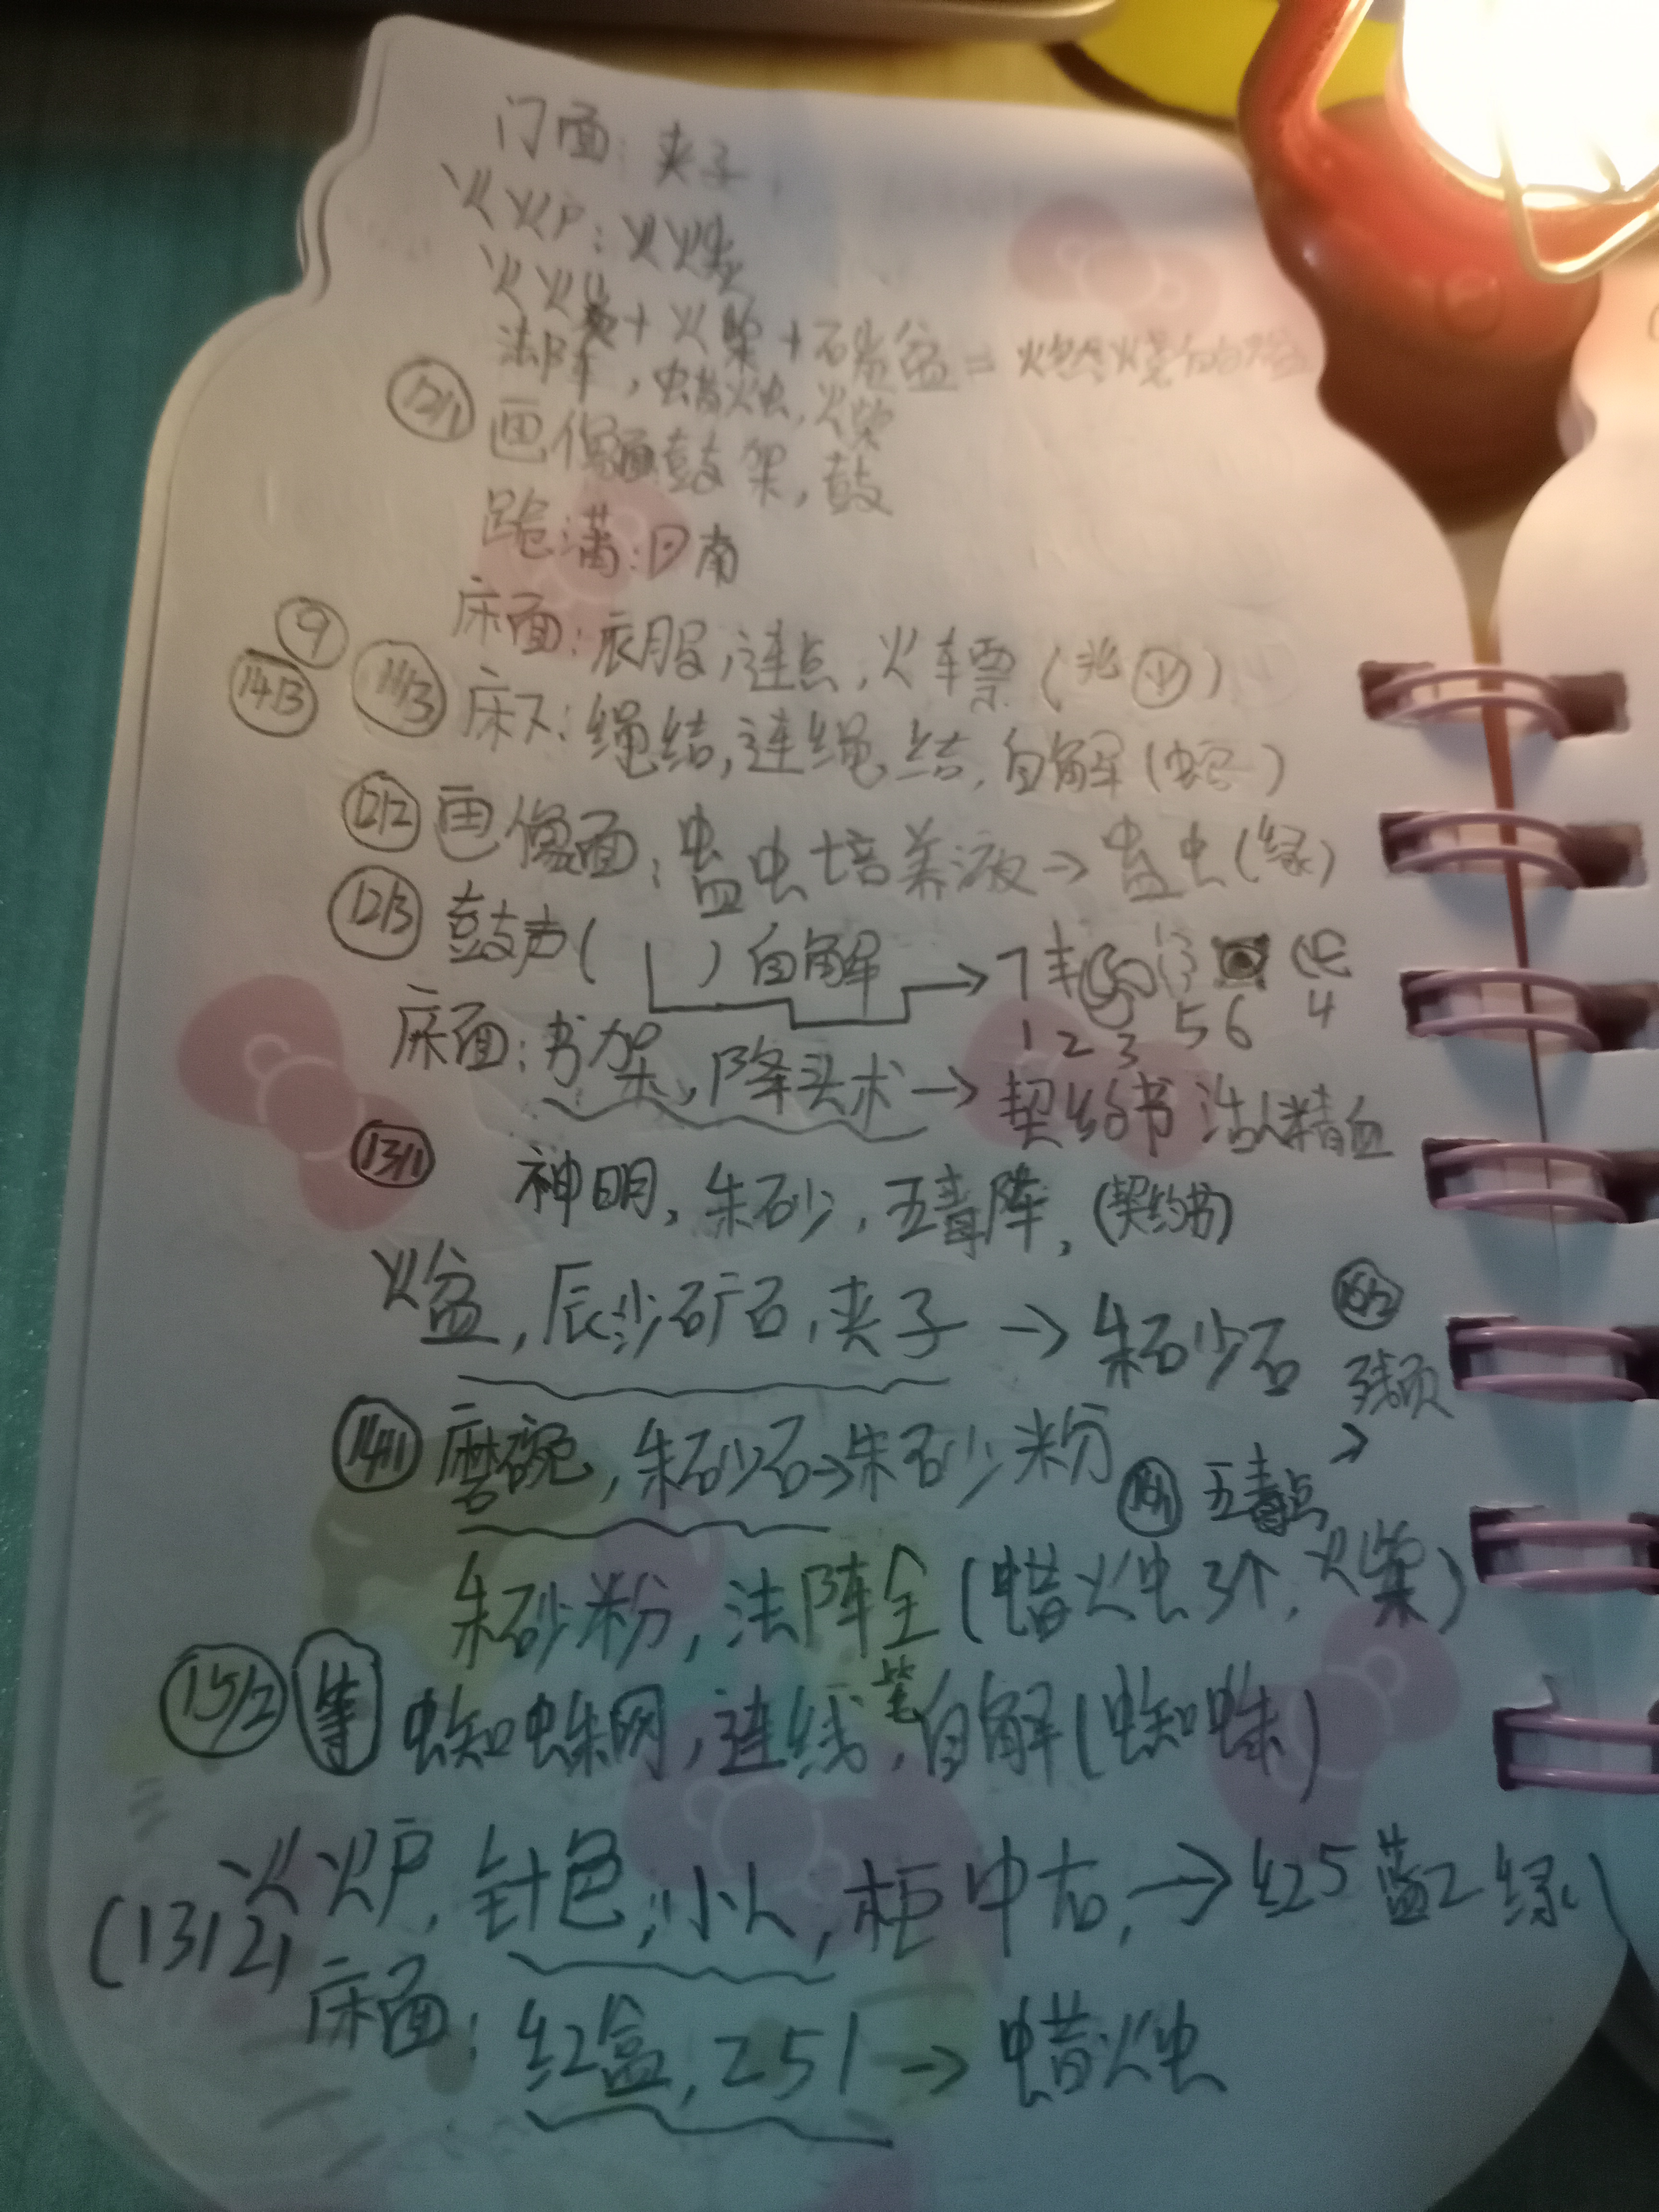 门面：夹子
火炉：火炭
火炭+火柴+石炭盆=燃烧的
法阵，蜡烛，火柴
12/1 画像面鼓架，鼓
南
9
床面：衣服，连点，火车票（北）
14/3 11/3 床下：绳结，连绳结，自解（蛇）
12/2 画像面：蛊虫培养液→蛊虫（绿）
12/3 鼓声（ ）自解→
1 2 3 5 6 4
床面：书架，降头术→契约书 活人精血
13/1 神明，朱砂，五毒阵，（契约书）
火盆，辰沙矿石，夹子→朱砂石
残页
14/1 磨碗，朱砂石→朱砂粉
五毒点→
朱砂粉，法阵全（蜡烛3个，火柴）
15/2 等 蜘蛛网，连线笔，自解（蜘蛛）
火炉，针包，小人，柜中右，→红5 蓝2 绿1
（13/2）
床面：红盒，251→蜡烛